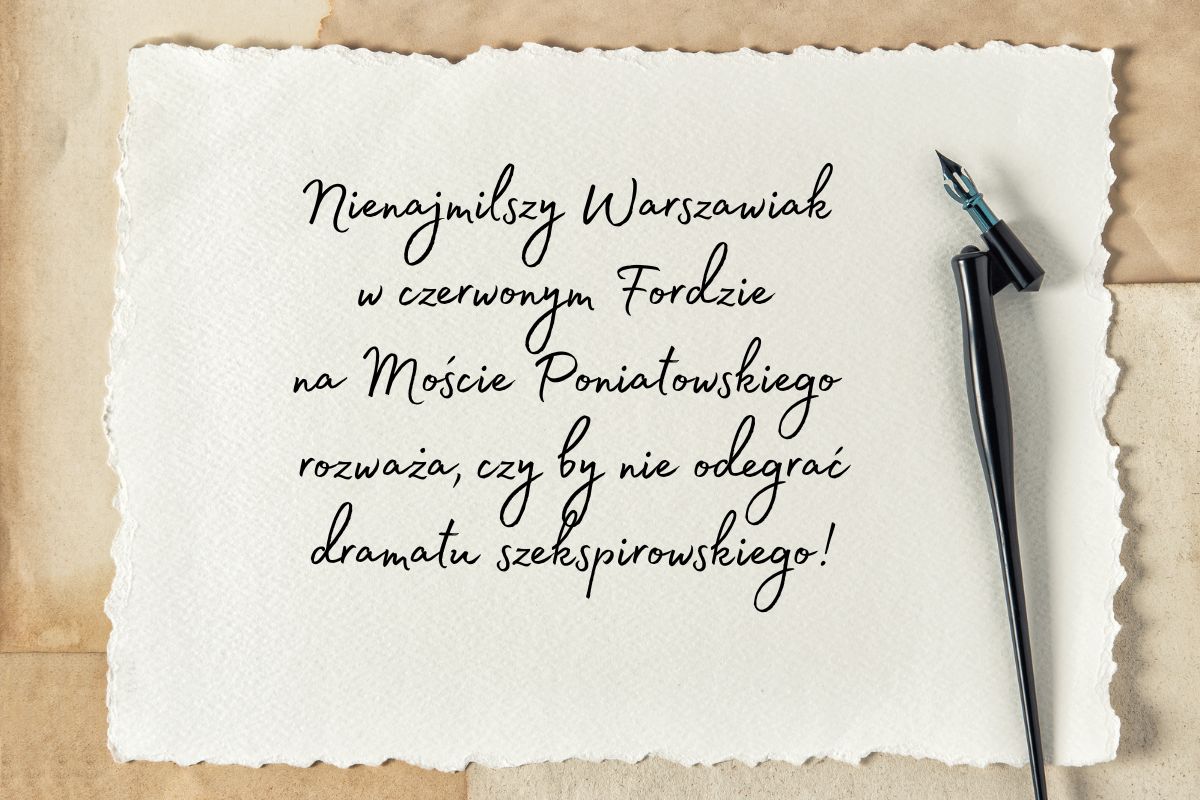 Nienajmilszy Warszawiak
w czerwonym Fordzie
na Moście Poniatowskiego
rozważa, czy by nie odegrać
dramatu szekspirowskiego!